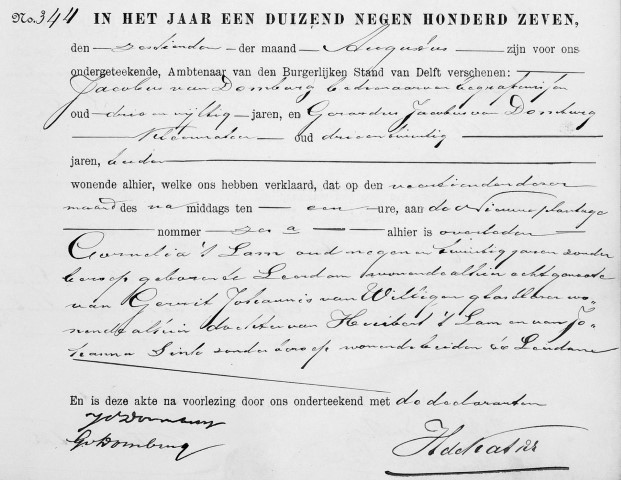 No. 344 IN HET JAAR EEN DUIZEND NEGEN HONDERD ZEVEN,
den zestienden der maand Augustus zijn voor ons
ondergeteekende, Ambtenaar van den Burgerlijken Stand van Delft verschenen:
Jacobus van Domburg bedienaar van begrafenissen
oud drie en vijftig jaren, en Gerardus Jacobus van Domburg
oud drie en twintig
jaren, beiden
wonende alhier, welke ons hebben verklaard, dat op den veertienden dezer
maand des na middags ten een ure, aan de Nieuwe plantage
nommer zes a alhier is overleden
Cornelia 't Lam oud negen en twintig jaren zonder
beroep geboren te Leerdam wonende alhier echtgenoote
van Gerrit Johannis van Willigen glasblazer wo-
nende alhier dochter van Huibert 't Lam en van Jo-
hanna zonder beroep wonende beiden te Leerdam
En is deze akte na voorlezing door ons onderteekend met de declaranten
JvDomburg
GvDomburg